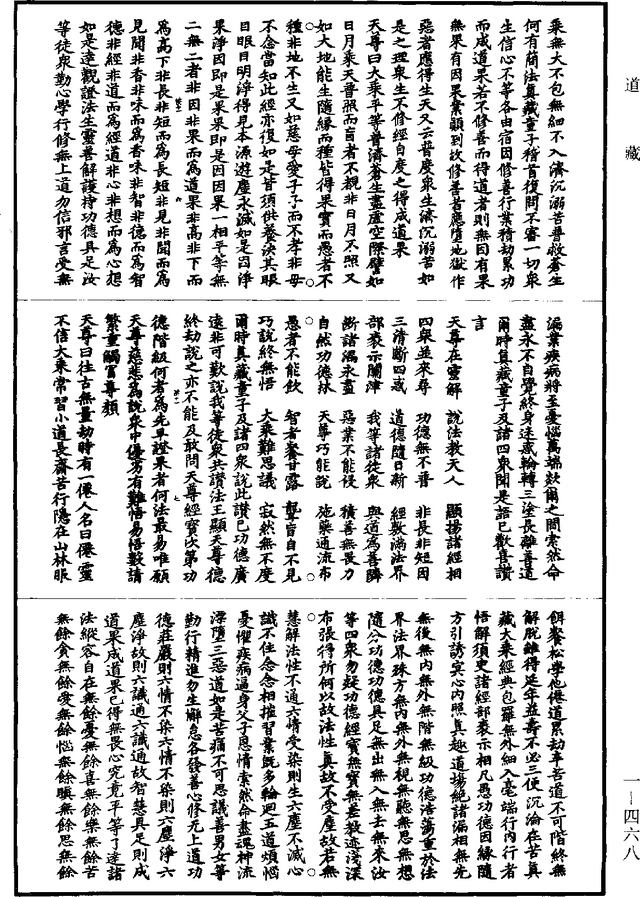 道藏
一—四六八
乘無大不包無細不入濟沉溺苦普救蒼生
何有簡法真藏童子稽首復問不審一切衆
生信心不等各由宿因修善行業積劫累功
而成道果若不修善而得道者則無因有果
無果有因果業顯到故修善者應墮地獄作
惡者應得生天又云普度衆生濟沉溺苦如
是之理衆生不修經自度之得成道果
天尊曰大乘平等普濟蒼生盡虛空際譬如
日月乘天普照而盲者不覩非日月不照又
如大地能生隨緣而種皆得果實而愚者不
種非地不生又如慈母愛子子而不孝非母
不念當知此經亦復如是皆須供養決其眼
目眼目明淨得見本源遊塵永滅如是因淨
果淨因即是果果即是因因果一相平等無
二無二者非因非果而為道果非高非下而
為高下非長非短而為長短非見非聞而為
見聞非香非味而為香味非智非德而為智
德非經非道而為經道非心非想而為心想
如是達觀證法生靈善解護持功德具足汝
等徒衆勤心學行修無上道勿信邪言受無
漏業疾病將至憂惱萬端欻爾之間索然命
盡永不自覺終身迷惑輪轉三塗長離善道
爾時真藏童子及諸四衆聞是語已歡喜讚
言
天尊在靈解　說法教天人　顯揚諸經相
四衆並來尋　功德無不普　非長非短因
三清斷四惑　道德隨日漸　經教滿法界
部袠示關津　我等諸徒衆　與道為善隣
斷諸漏永盡　惡業不能侵　積善無畏力
自然功德林　天尊巧能說　施藥通流布
愚者不能飲　智者養甘露　聾盲自不見
巧說終無悟　大乘難思議　寂然無不度
爾時真藏童子及諸四衆說此讚已功德廣
遠非可歎說我等徒衆共讚法王顯天尊德
終劫說之亦不能及敢問天尊經寶次第功
德階級何者為先早證果者何法最易唯願
天尊慈悲為說衆中優劣有難悟易悟數請
繁重觸冒尊顏
天尊曰往古無量劫時有一僊人名曰僊靈
不信大乘常習小道長齋苦行隱在山林眼
餌餐松學他僊道累劫辛苦道不可階終無
解脫雖得延年益壽不必三使沉淪在苦真
藏大乘經典包羅無外細入毫端行內行者
悟解須史諸經部袠示相凡愚功德因緣隨
方引誘冥心內照真趣道場絕諸漏相無先
無後無內無外無階無級功德浩蕩重於法
界法界殊方無內無外無視無聽無思無想
隨分功德功德具足無出無入無去無來汝
等四衆勿疑功德經寶無寶無差教迹淺深
布張得所何以故法性真故不受塵故若無
慧解法性不通六情受染則生六塵不滅心
識不住念念相摧習業既多輪迴五道煩惱
憂懼疾病逼身父子恩情索然命盡魂神流
漂墮三惡道如是苦痛不可思議善男女等
勤行精進勿生懈怠各發善心修无上道功
德莊嚴則六情不染六情不染則六塵淨六
塵淨故則六識通六識通故智慧具足則成
道果成道果已得無畏心究竟平等了達諸
法縱容自在無餘憂無餘喜無餘樂無餘苦
無餘貪無餘愛無餘惱無餘瞋無餘思無餘